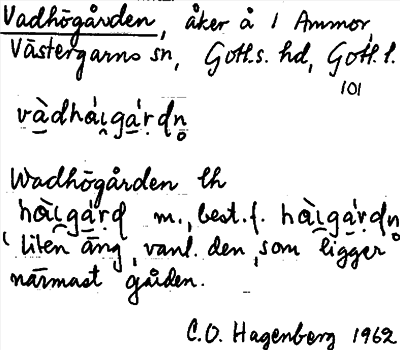 Vadhögården, åker å 1 Ammor,
Västergarns sn, Gotl.s. hd, Gotl. l.
101
vàdhái̯gá̱rdn̥
Wadhögården lh
hài̯gá̱rd m., best. f. hài̯gá̱rdn̥
' liten äng, vanl. den, som ligger
närmast gården.
C.O. Hagenberg 1962